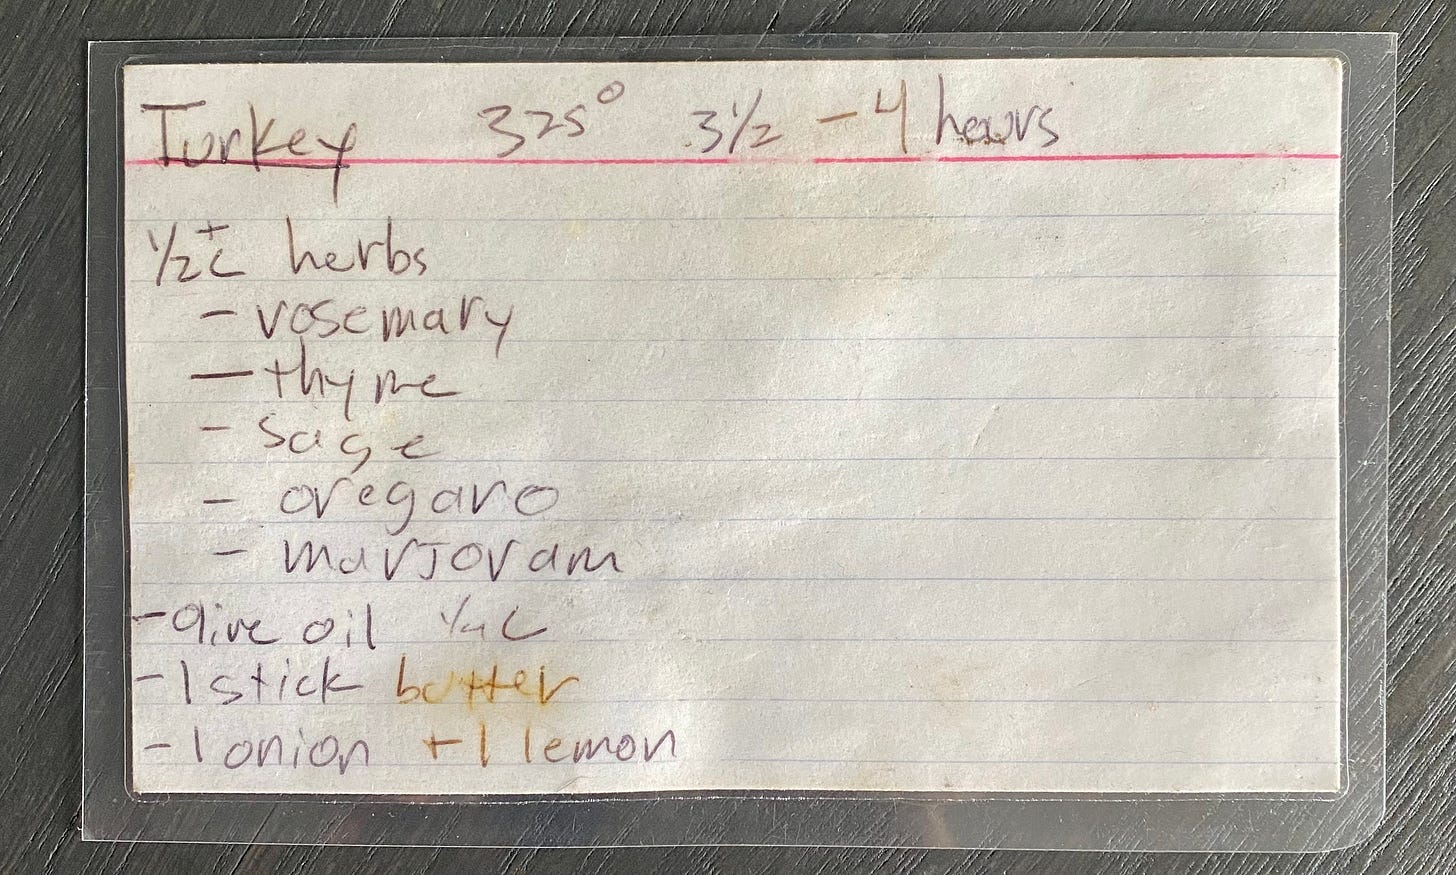 Turkey 325° 3½ - 4 hours
½ c+ herbs
- rosemary
- thyme
- sage
- oregano
- marjoram
- olive oil ¼ C
- 1 stick butter
- 1 onion + 1 lemon